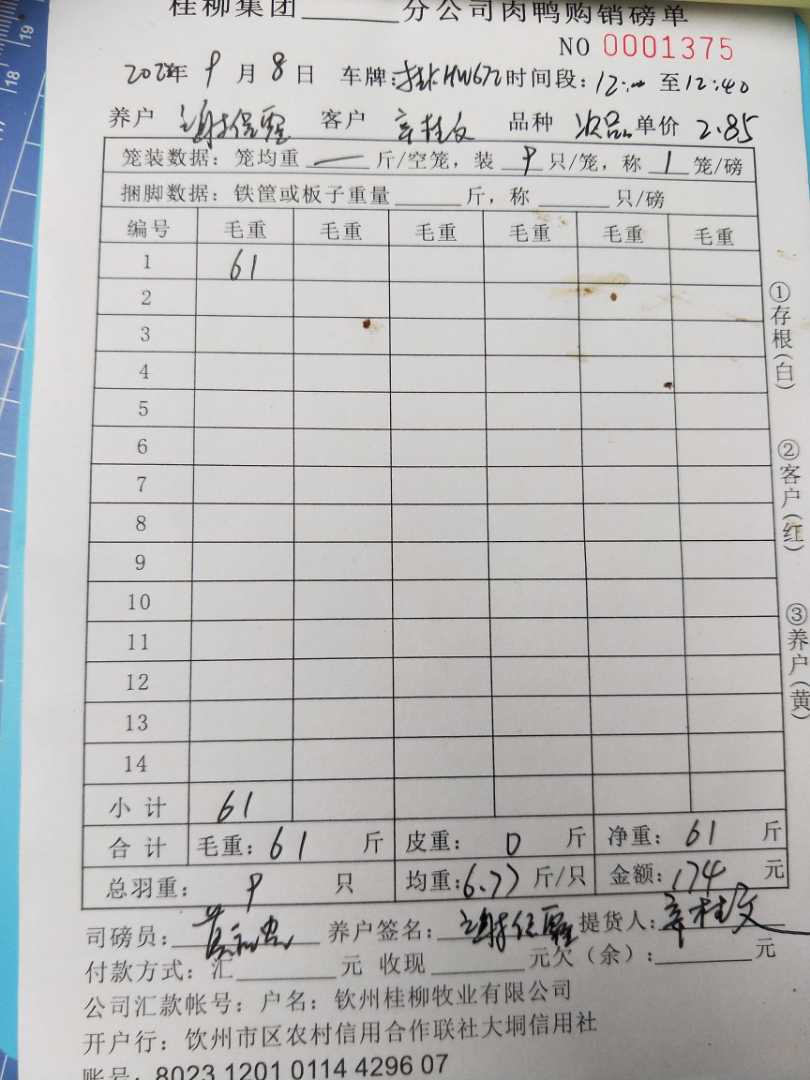 桂柳集团______分公司肉鸭购销磅单
NO 0001375
9月8日 车牌: HW672 时间段: 12:00 至12:40
养户 谢保 客户 辛桂文 品种 次品 单价 2.85
笼装数据: 笼均重 — 斤/空笼, 装 9 只/笼, 称 1 笼/磅
捆脚数据: 铁筐或板子重量______斤, 称______只/磅
编号 毛重 毛重 毛重 毛重 毛重 毛重
1 61
2
3
4
5
6
7
8
9
10
11
12
13
14
小计 61
合计 毛重: 61 斤 皮重: 0 斤 净重: 61 斤
总羽重: 9 只 均重: 6.77 斤/只 金额: 174 元
司磅员: 黄 养户签名: 谢保 提货人: 辛桂文
付款方式: 汇______元 收现______元欠（余）:______元
公司汇款帐号: 户名: 钦州桂柳牧业有限公司
开户行: 饮州市区农村信用合作联社大垌信用社
账号: 8023 1201 0114 4296 07
①存根(白)
②客户(红)
③养户(黄)
18
19